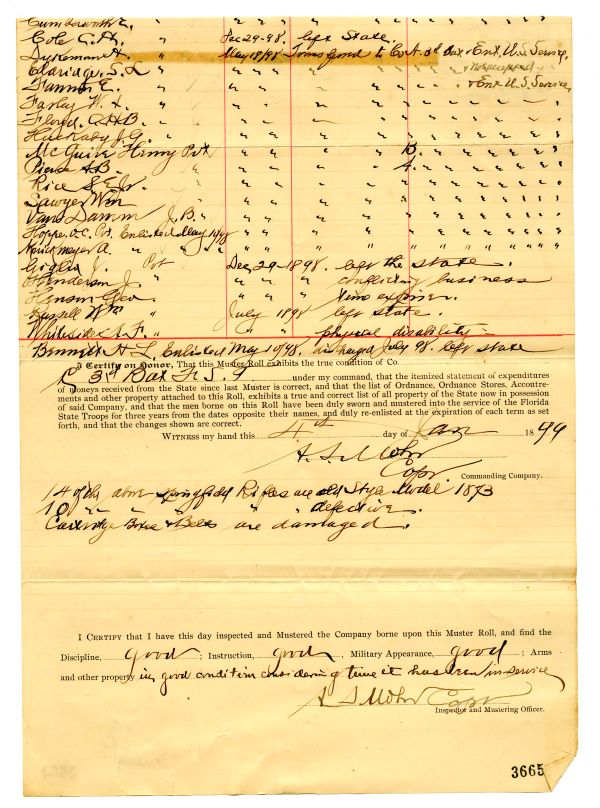 Cole C. H. " Dec 29-98 left State.
Dykeman A " May 18/98 Transferred to Co A. 3d Bat & Ent. U.S. Service,
Eldaridge, S. L " " " " " "
Fannin E. " " " " " & Ent U S Service
Farley W. L. "
Floyd, C. H. B "
Huckaby J. G. "
McGuire Henry Pvt " " " B. " "
Pierce A B. " " " " A. " "
Rice S. E. Jr. "
Sawyer Wm "
Van Damm J. B. "
Hoppe O. C. Pvt. Enlisted May 1898
A. " " " "
Giglia J. Pvt Dec 29-1898. left the state.
Henderson J. " " " conflicting business
Henson Geo " " " time expired.
Russell Wm " July 1898 left state.
Whiteside A. F. " " " physical disability
Bennett H L, Enlisted May 10/98. discharged July 98. left state
I Certify on Honor, That this Muster Roll exhibits the true condition of Co
C 3rd Bat F. S. T. under my command, that the itemized statement of expenditures
of moneys received from the State since last Muster is correct, and that the list of Ordnance, Ordnance Stores, Accoutre-
ments and other property attached to this Roll, exhibits a true and correct list of all property of the State now in possession
of said Company, and that the men borne on this Roll have been duly sworn and mustered into the service of the Florida
State Troops for three years from the dates opposite their names, and duly re-enlisted at the expiration of each term as set
forth, and that the changes shown are correct.
Witness my hand this 4th day of Jan 1899
Capt.
Commanding Company.
14 of the above Springfield Rifles are old Style Model 1873
10 " " " " " defective.
Cartridge Boxes & Belts are damaged.
I Certify that I have this day inspected and Mustered the Company borne upon this Muster Roll, and find the
Discipline, good ; Instruction, good , Military Appearance, good ; Arms
and other property in good condition considering time it has been in service
Capt
Inspector and Mustering Officer.
3665